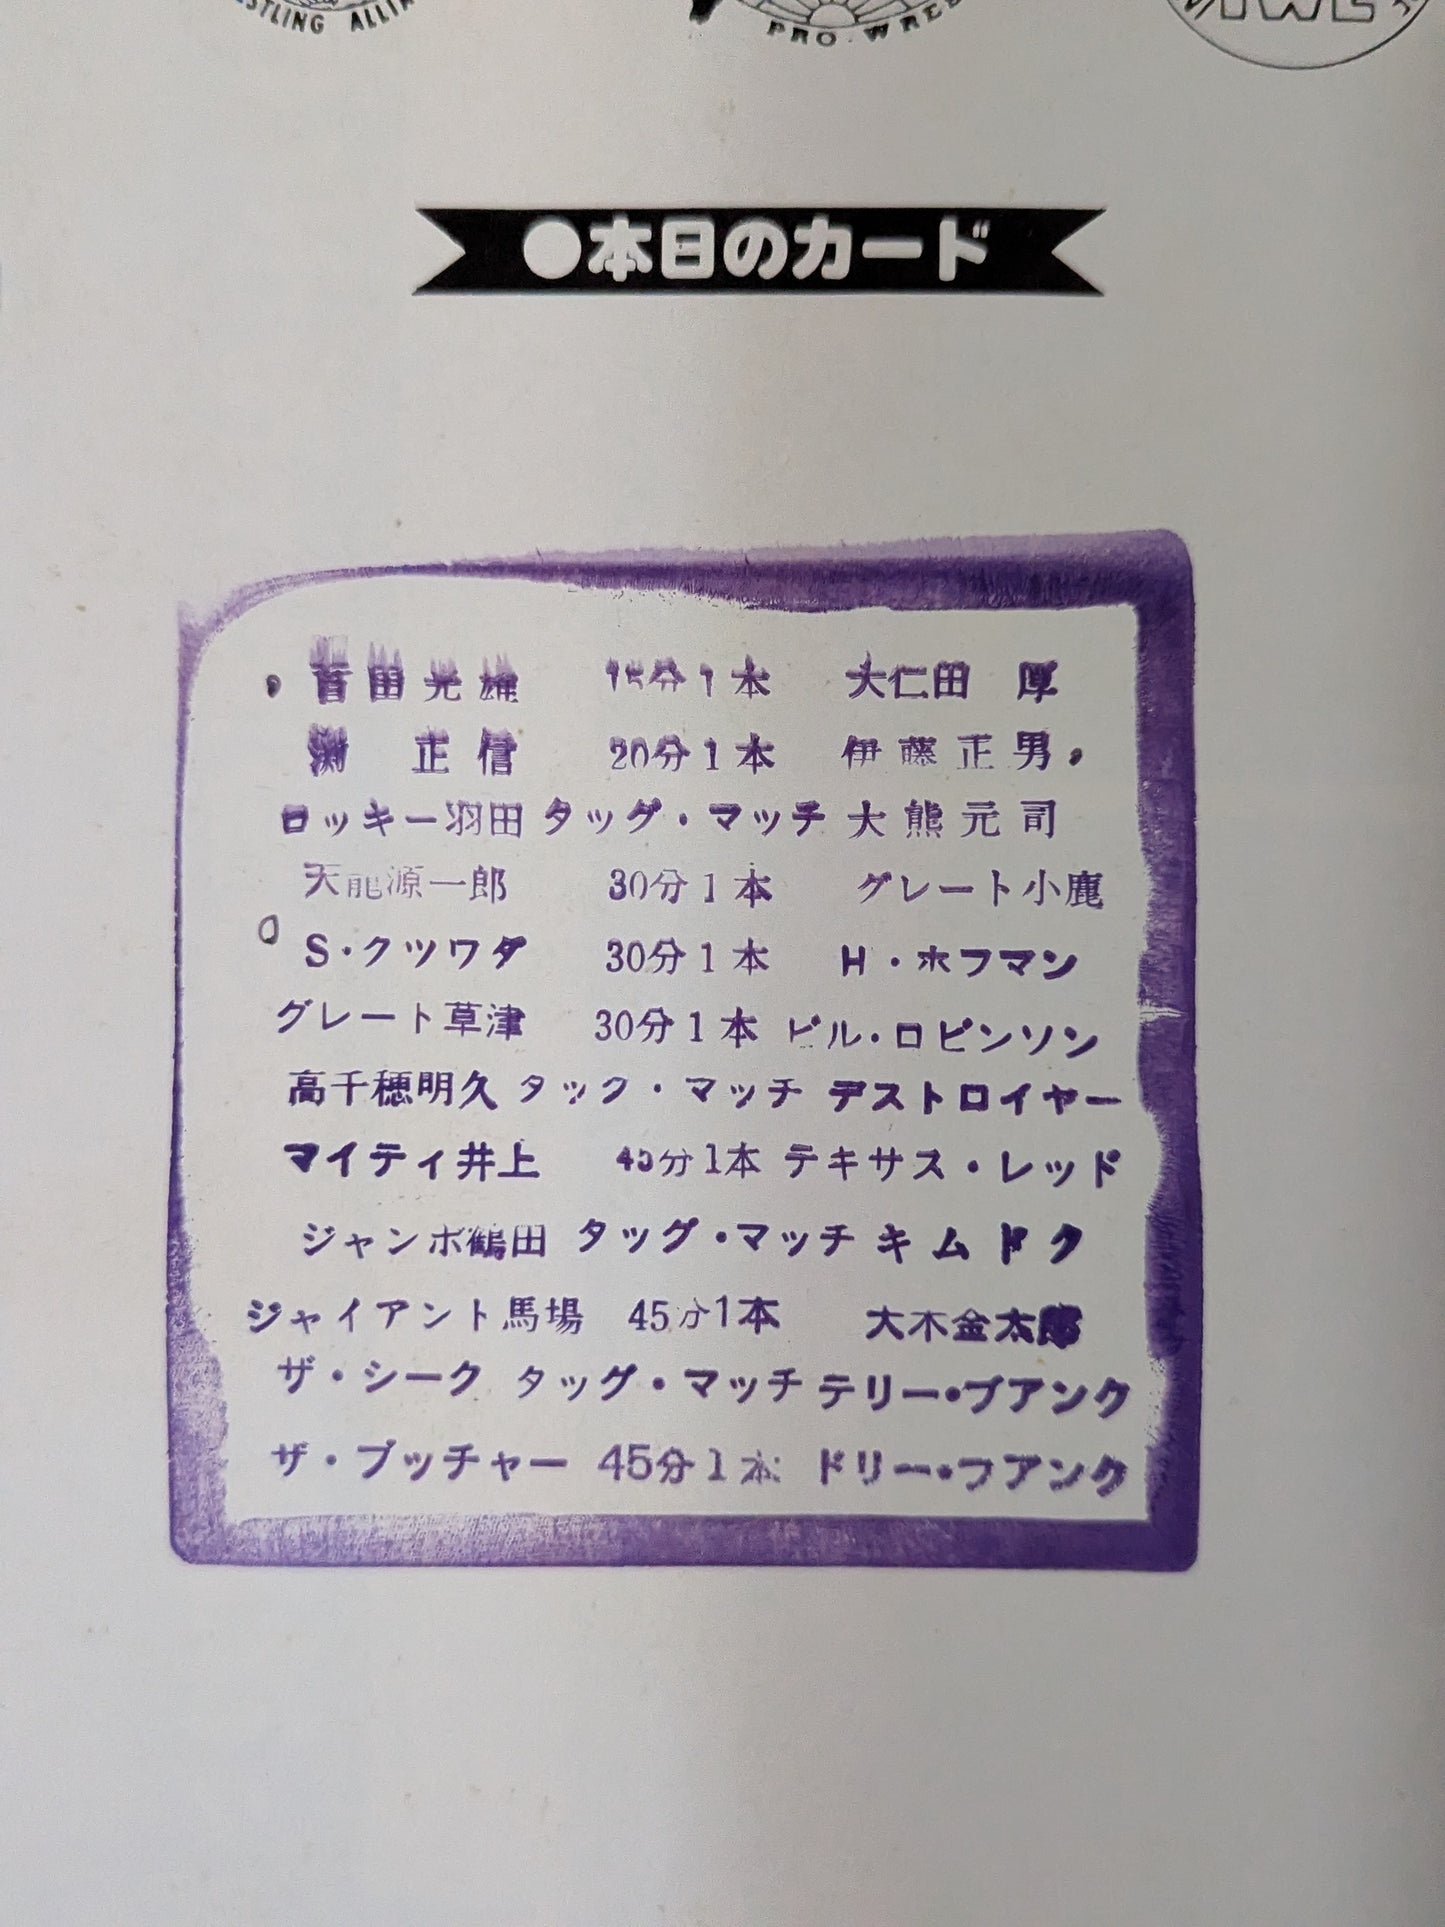 STLING ALLI
PRO.WRES
IWE
●本日のカード
百田光雄 15分1本 大仁田 厚
渕 正信 20分1本 伊藤正男
ロッキー羽田 タッグ・マッチ 大熊元司
天龍源一郎 30分1本 グレート小鹿
S・クツワダ 30分1本 H・ホフマン
グレート草津 30分1本 ビル・ロビンソン
高千穂明久 タック・マッチ デストロイヤー
マイティ井上 45分1本 テキサス・レッド
ジャンボ鶴田 タッグ・マッチ キムドク
ジャイアント馬場 45分1本 大木金太郎
ザ・シーク タッグ・マッチ テリー・ブアンク
ザ・ブッチャー 45分1本 ドリー・フアンク